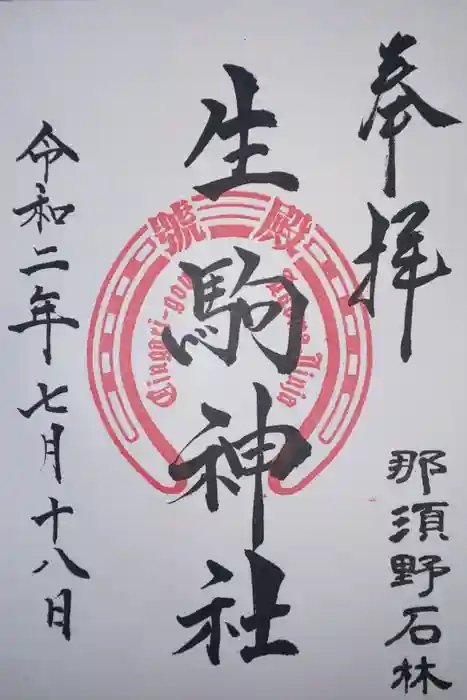 奉拝
那須野石林
生駒神社
殿號
Ikoma Jinja
Dingari-gog
令和二年七月十八日